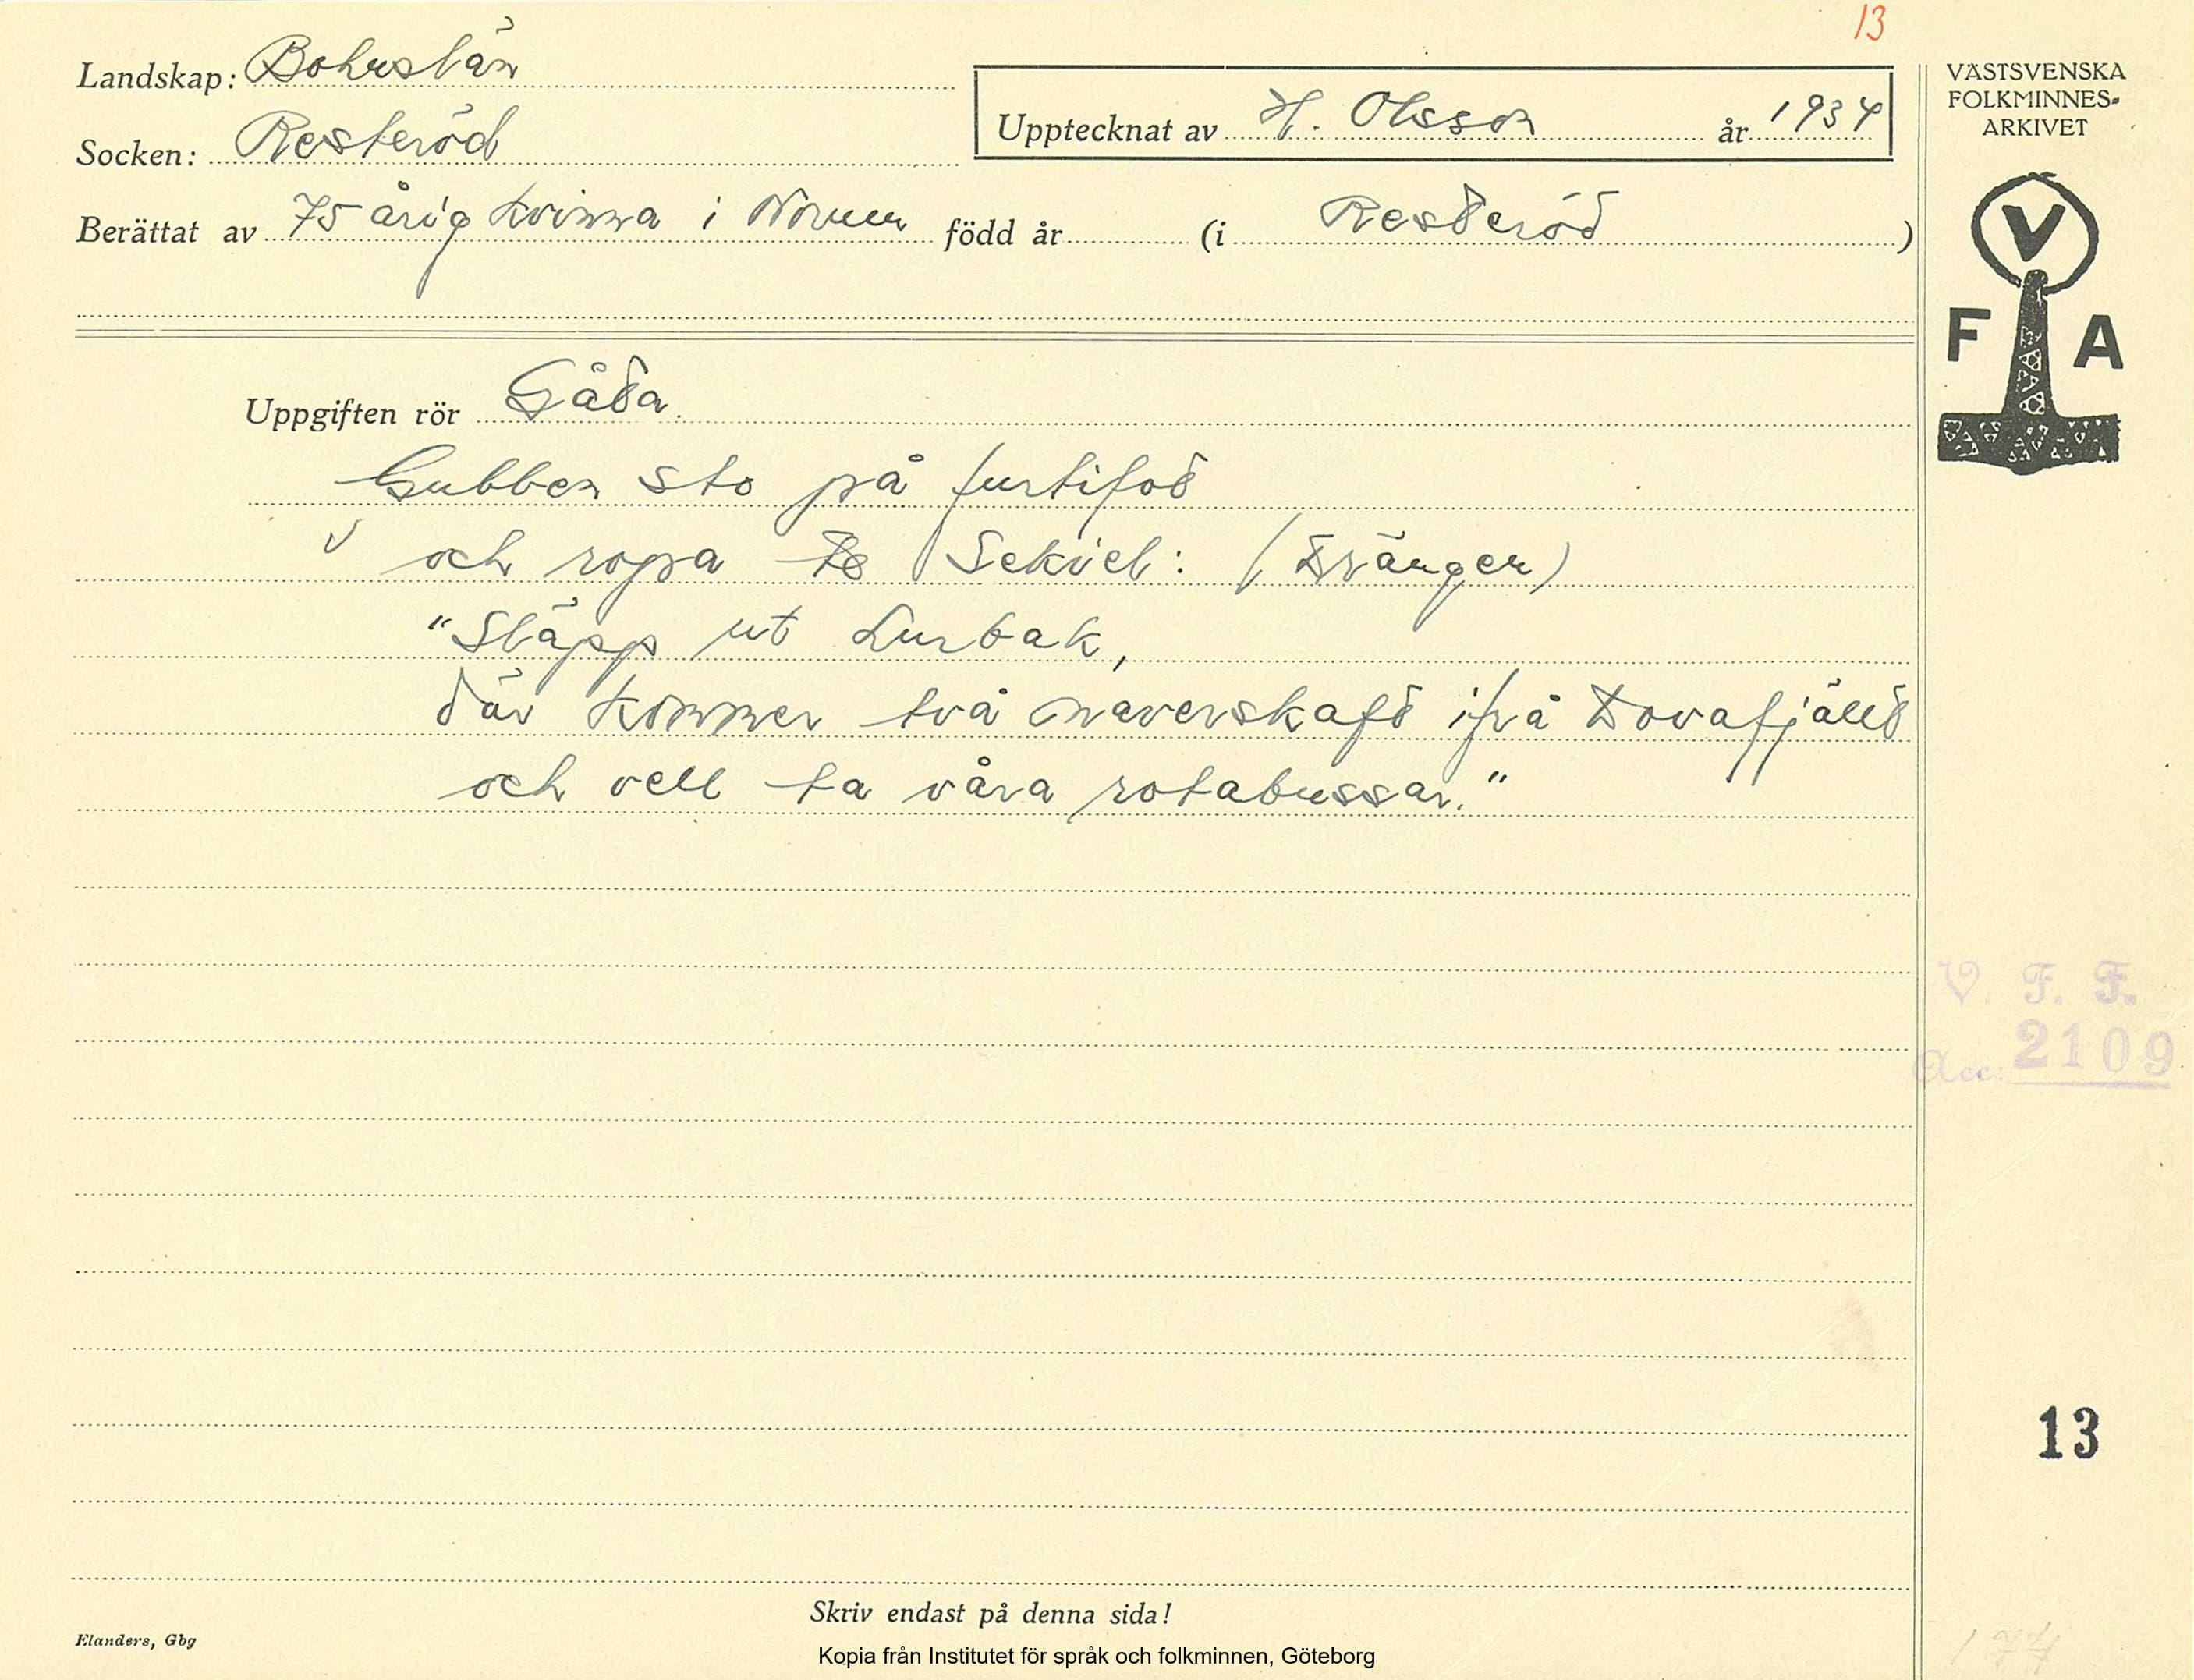 13
Landskap: Bohuslän
Socken: Resteröd
Upptecknat av H. Olsson år 1934
Berättat av 75 årig kvinna i Norum född år (i Resteröd)
VÄSTSVENSKA
FOLKMINNES-
ARKIVET
V
F A
Uppgiften rör Gåda.
Gubben sto på furtifod
och ropa te Sekiel: (dränger)
"Släpp ut Lurbak,
där kommer två naverskafd ifrå Dovafjälld
och vell ta våra rotabussar."
V. F. F.
Acc: 2109
13
Skriv endast på denna sida!
Elanders, Gbg
Kopia från Institutet för språk och folkminnen, Göteborg